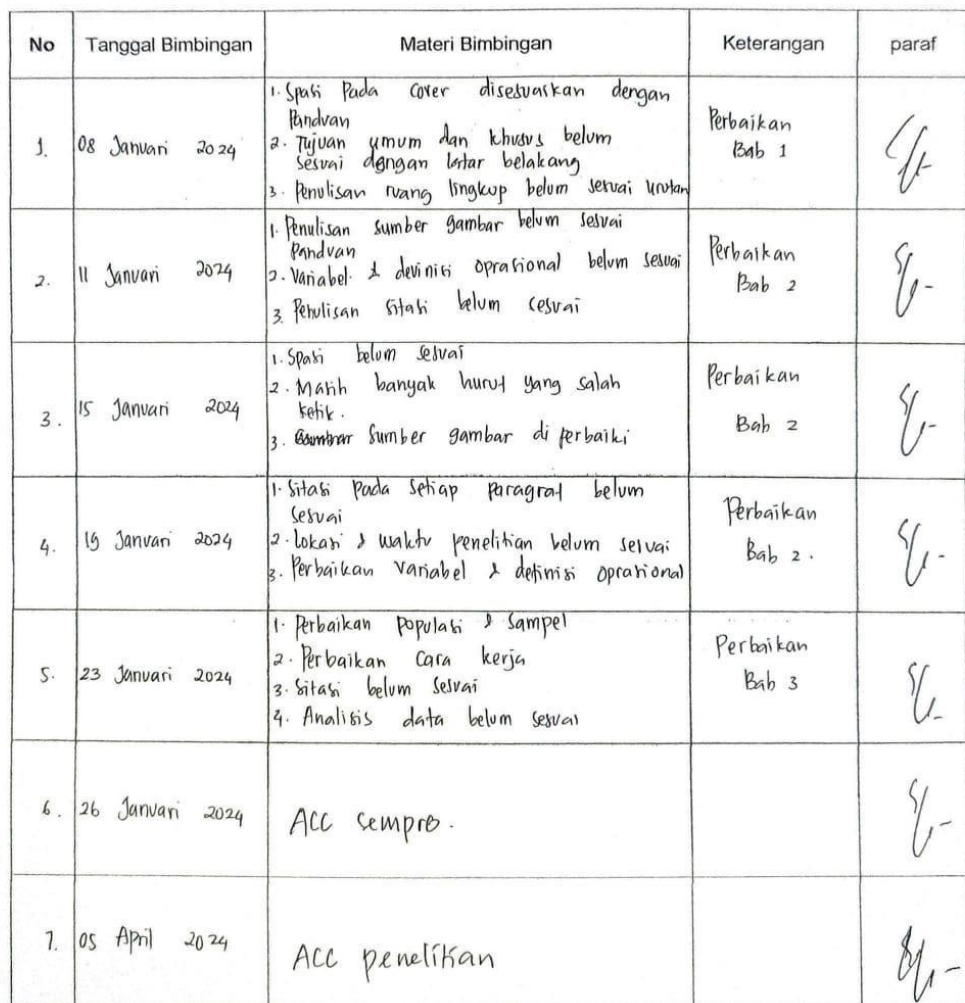 No Tanggal Bimbingan Materi Bimbingan Keterangan paraf
1. Spasi Pada cover disesuaikan dengan
Panduan
1. 08 Januari 2024
2. Tujuan umum dan khusus belum
sesuai dengan latar belakang
3. Penulisan ruang lingkup belum sesuai urutan
Perbaikan
Bab 1
2. 11 Januari 2024
1. Penulisan sumber gambar belum sesuai
Panduan
2. Variabel & devinisi oprasional belum sesuai
3. Penulisan sitasi belum sesuai
Perbaikan
Bab 2
3. 15 Januari 2024
1. Spasi belum sesuai
2. Masih banyak huruf yang salah
ketik.
3. Sumber gambar di perbaiki
Perbaikan
Bab 2
4. 19 Januari 2024
1. Sitasi Pada setiap paragraf belum
sesuai
2. Lokasi & waktu penelitian belum sesuai
3. Perbaikan Variabel & definisi oprasional
Perbaikan
Bab 2.
5. 23 Januari 2024
1. Perbaikan Populasi & Sampel
2. Perbaikan Cara kerja
3. Sitasi belum sesuai
4. Analisis data belum sesuai
Perbaikan
Bab 3
6. 26 Januari 2024
ACC sempro.
7. 05 April 2024
ACC penelitian